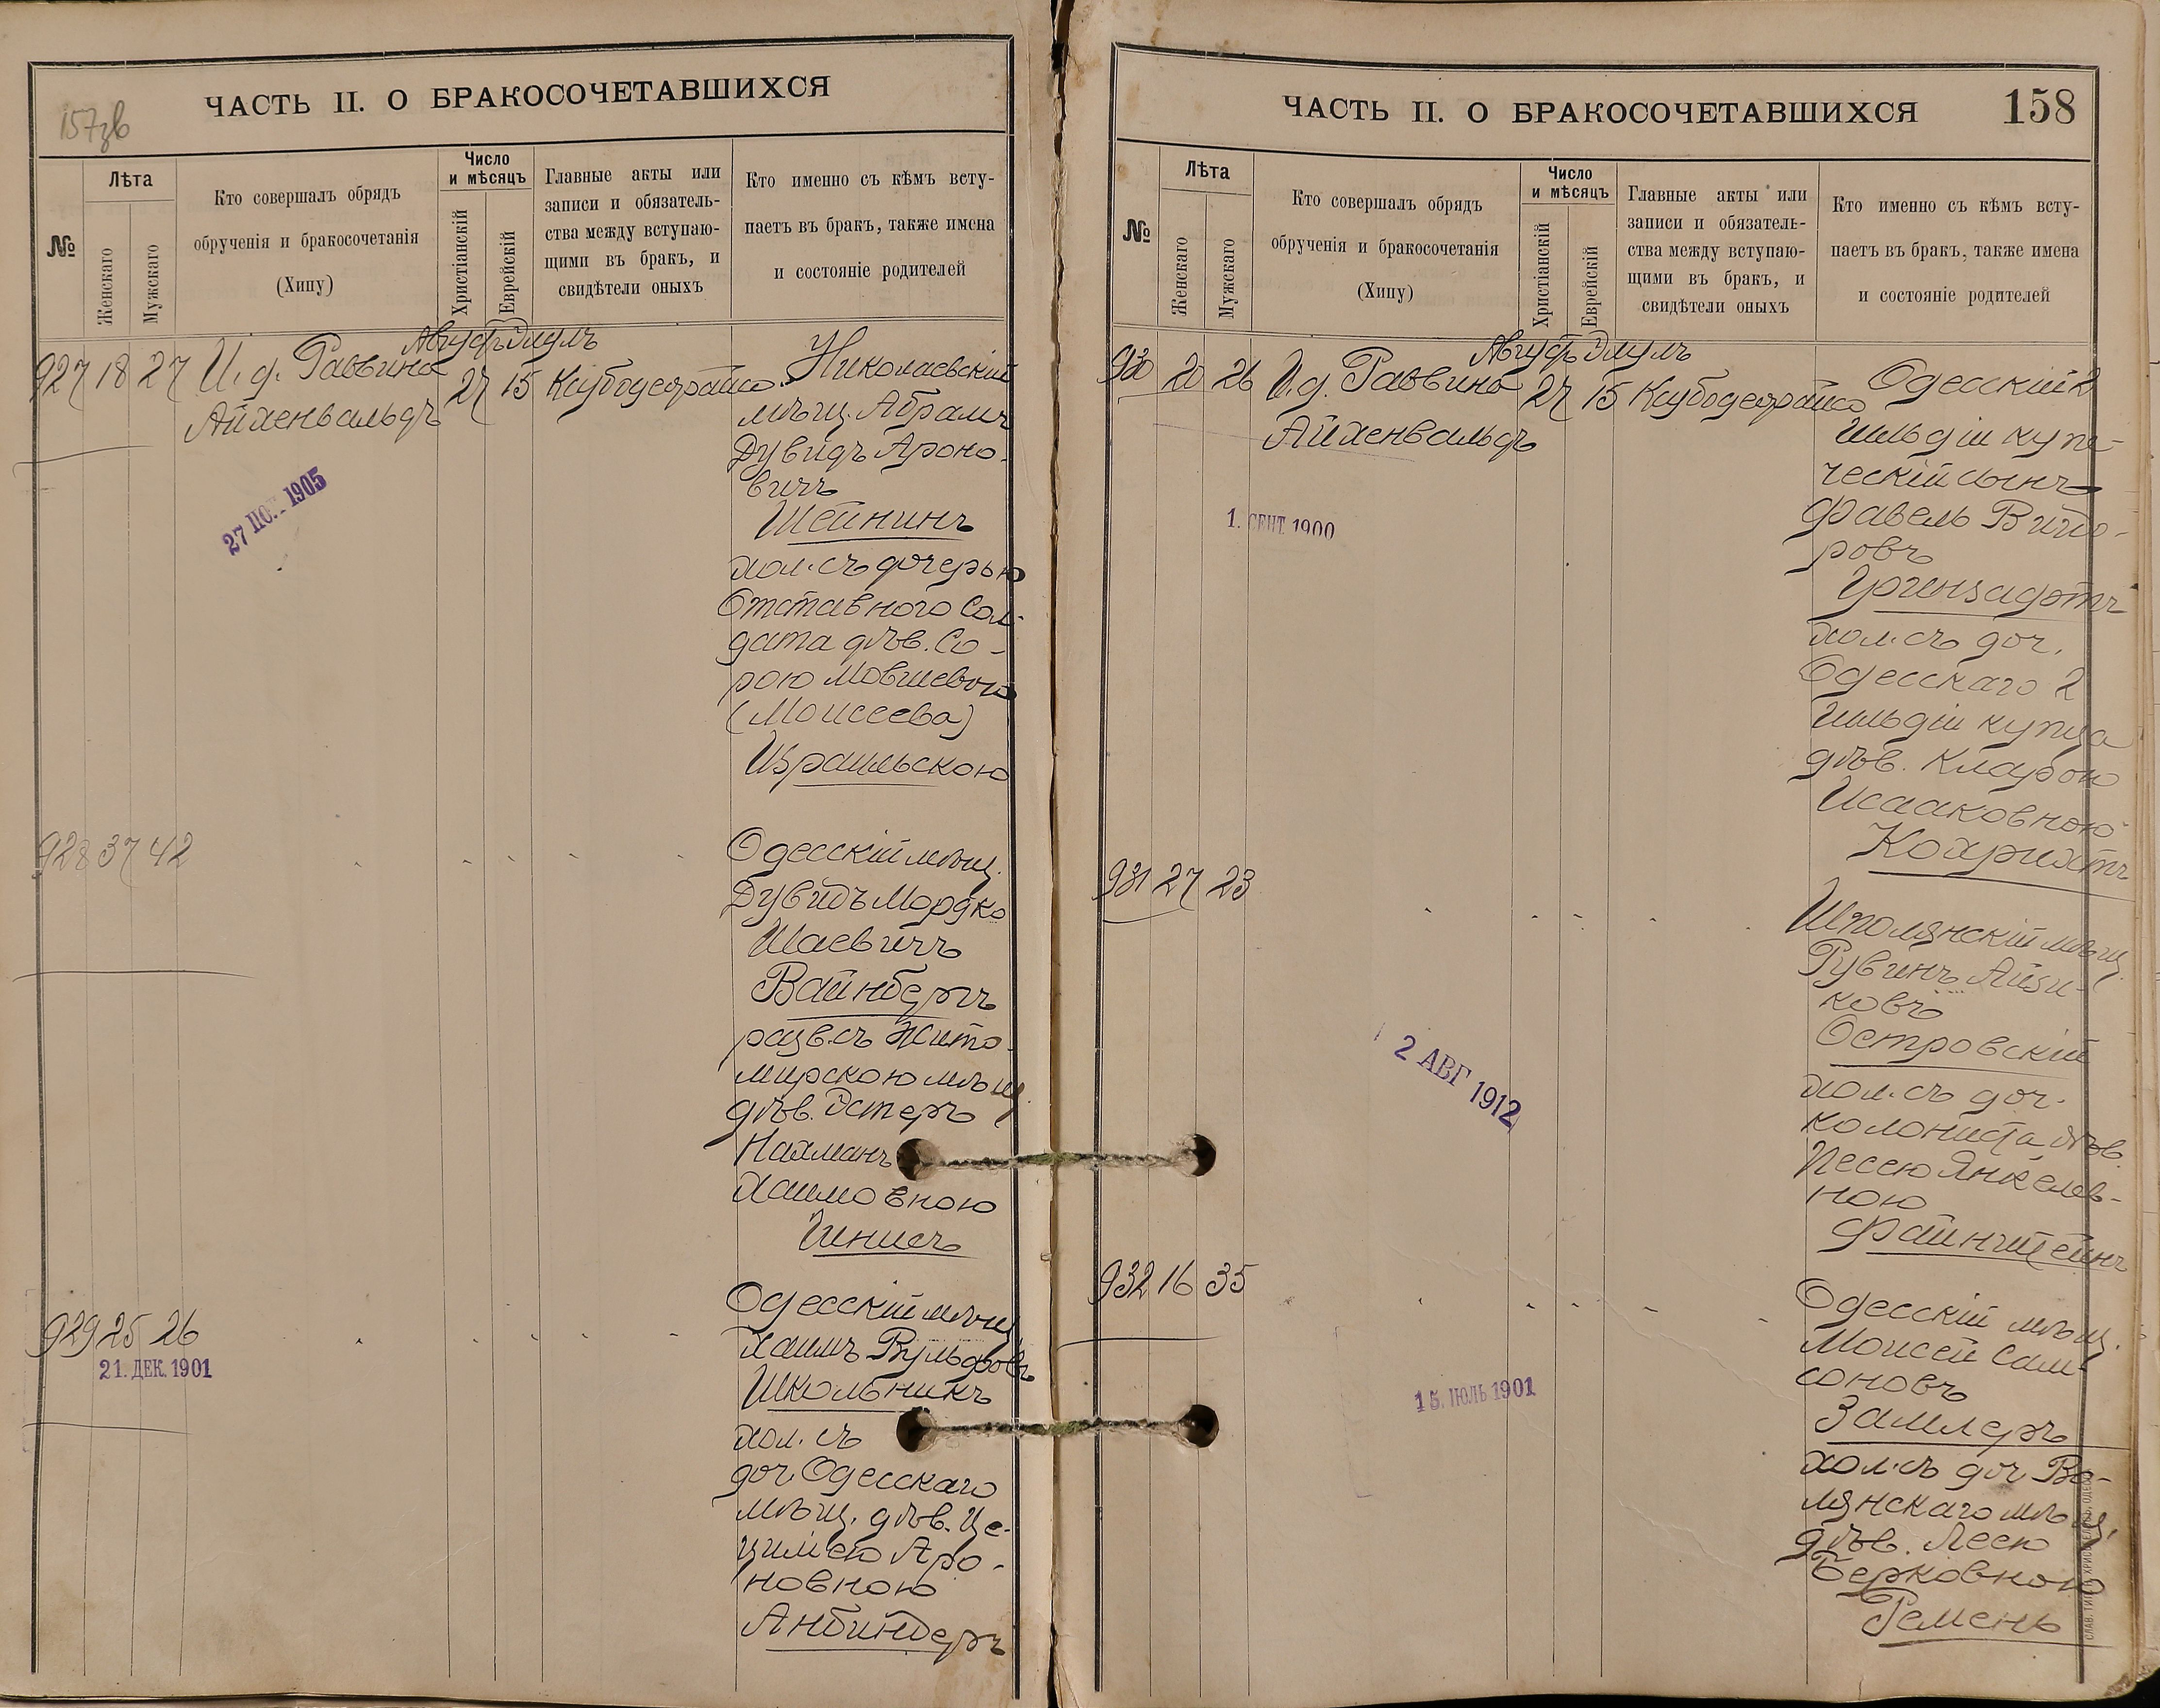 157зв
ЧАСТЬ II. О БРАКОСОЧЕТАВШИХСЯ
№
Лѣта
Женскаго
Мужскаго
Кто совершалъ обрядъ
обрученія и бракосочетанія
(Хипу)
Число
и мѣсяцъ
Христіанскій
Еврейскій
Главные акты или
записи и обязатель-
ства между вступаю-
щими въ бракъ, и
свидѣтели оныхъ
Кто именно съ кѣмъ всту-
паетъ въ бракъ, также имена
и состояніе родителей
Август Элулъ
927 18 27 И. д. Раввина 27 15
Айхенвальдъ
27 1905
Николаевскій
мѣщ. Абрамъ
Дувидъ Ароно-
вичъ
Шейнинъ
хол. съ дочерью
Отставного Сол-
дата дѣв. Со-
рою Мовшевою
(Моисеева)
Израильскою
928 37 42
Одесскій мѣщ.
Дувидъ Мордко
Шаевичъ
Вайнбергъ
разв. съ Жито-
мирскою мѣщ.
дѣв. Эстеръ
Нахманъ
Хаимовною
929 25 26
21. ДЕК. 1901
Одесскій мѣщ
Хаимъ Вульфовъ
Школьникъ
хол. съ
доч. Одесскаго
мѣщ. дѣв. Це-
циліею Аро-
новною
Анбиндеръ
ЧАСТЬ II. О БРАКОСОЧЕТАВШИХСЯ
158
№
Лѣта
Женскаго
Мужскаго
Кто совершалъ обрядъ
обрученія и бракосочетанія
(Хипу)
Число
и мѣсяцъ
Христіанскій
Еврейскій
Главные акты или
записи и обязатель-
ства между вступаю-
щими въ бракъ, и
свидѣтели оныхъ
Кто именно съ кѣмъ всту-
паетъ въ бракъ, также имена
и состояніе родителей
Август Элулъ
930 20 26 И. д. Раввина 27 15
Айхенвальдъ
1. СЕНТ. 1900
Одесскій 2
гильдіи купе-
ческій сынъ
Фавель
ровъ
хол. съ доч.
Одесскаго 2
гильдіи купца
дѣв. Кларою
Исааковною
Кохрихтъ
931 27 23
2 АВГ 1912
Шполянскій мѣщ
Рувинъ Айзи-
ковъ
Островскій
хол. съ доч.
колониста дѣв.
Песею Янкелев-
ною
Файнштейнъ
932 16 35
15. ІЮЛЬ 1901
Одесскій мѣщ.
Моисей Сам-
соновъ
Замлеръ
хол. съ доч. Во-
лянскаго мѣщ,
дѣв. Леею
Берковною
Ремень